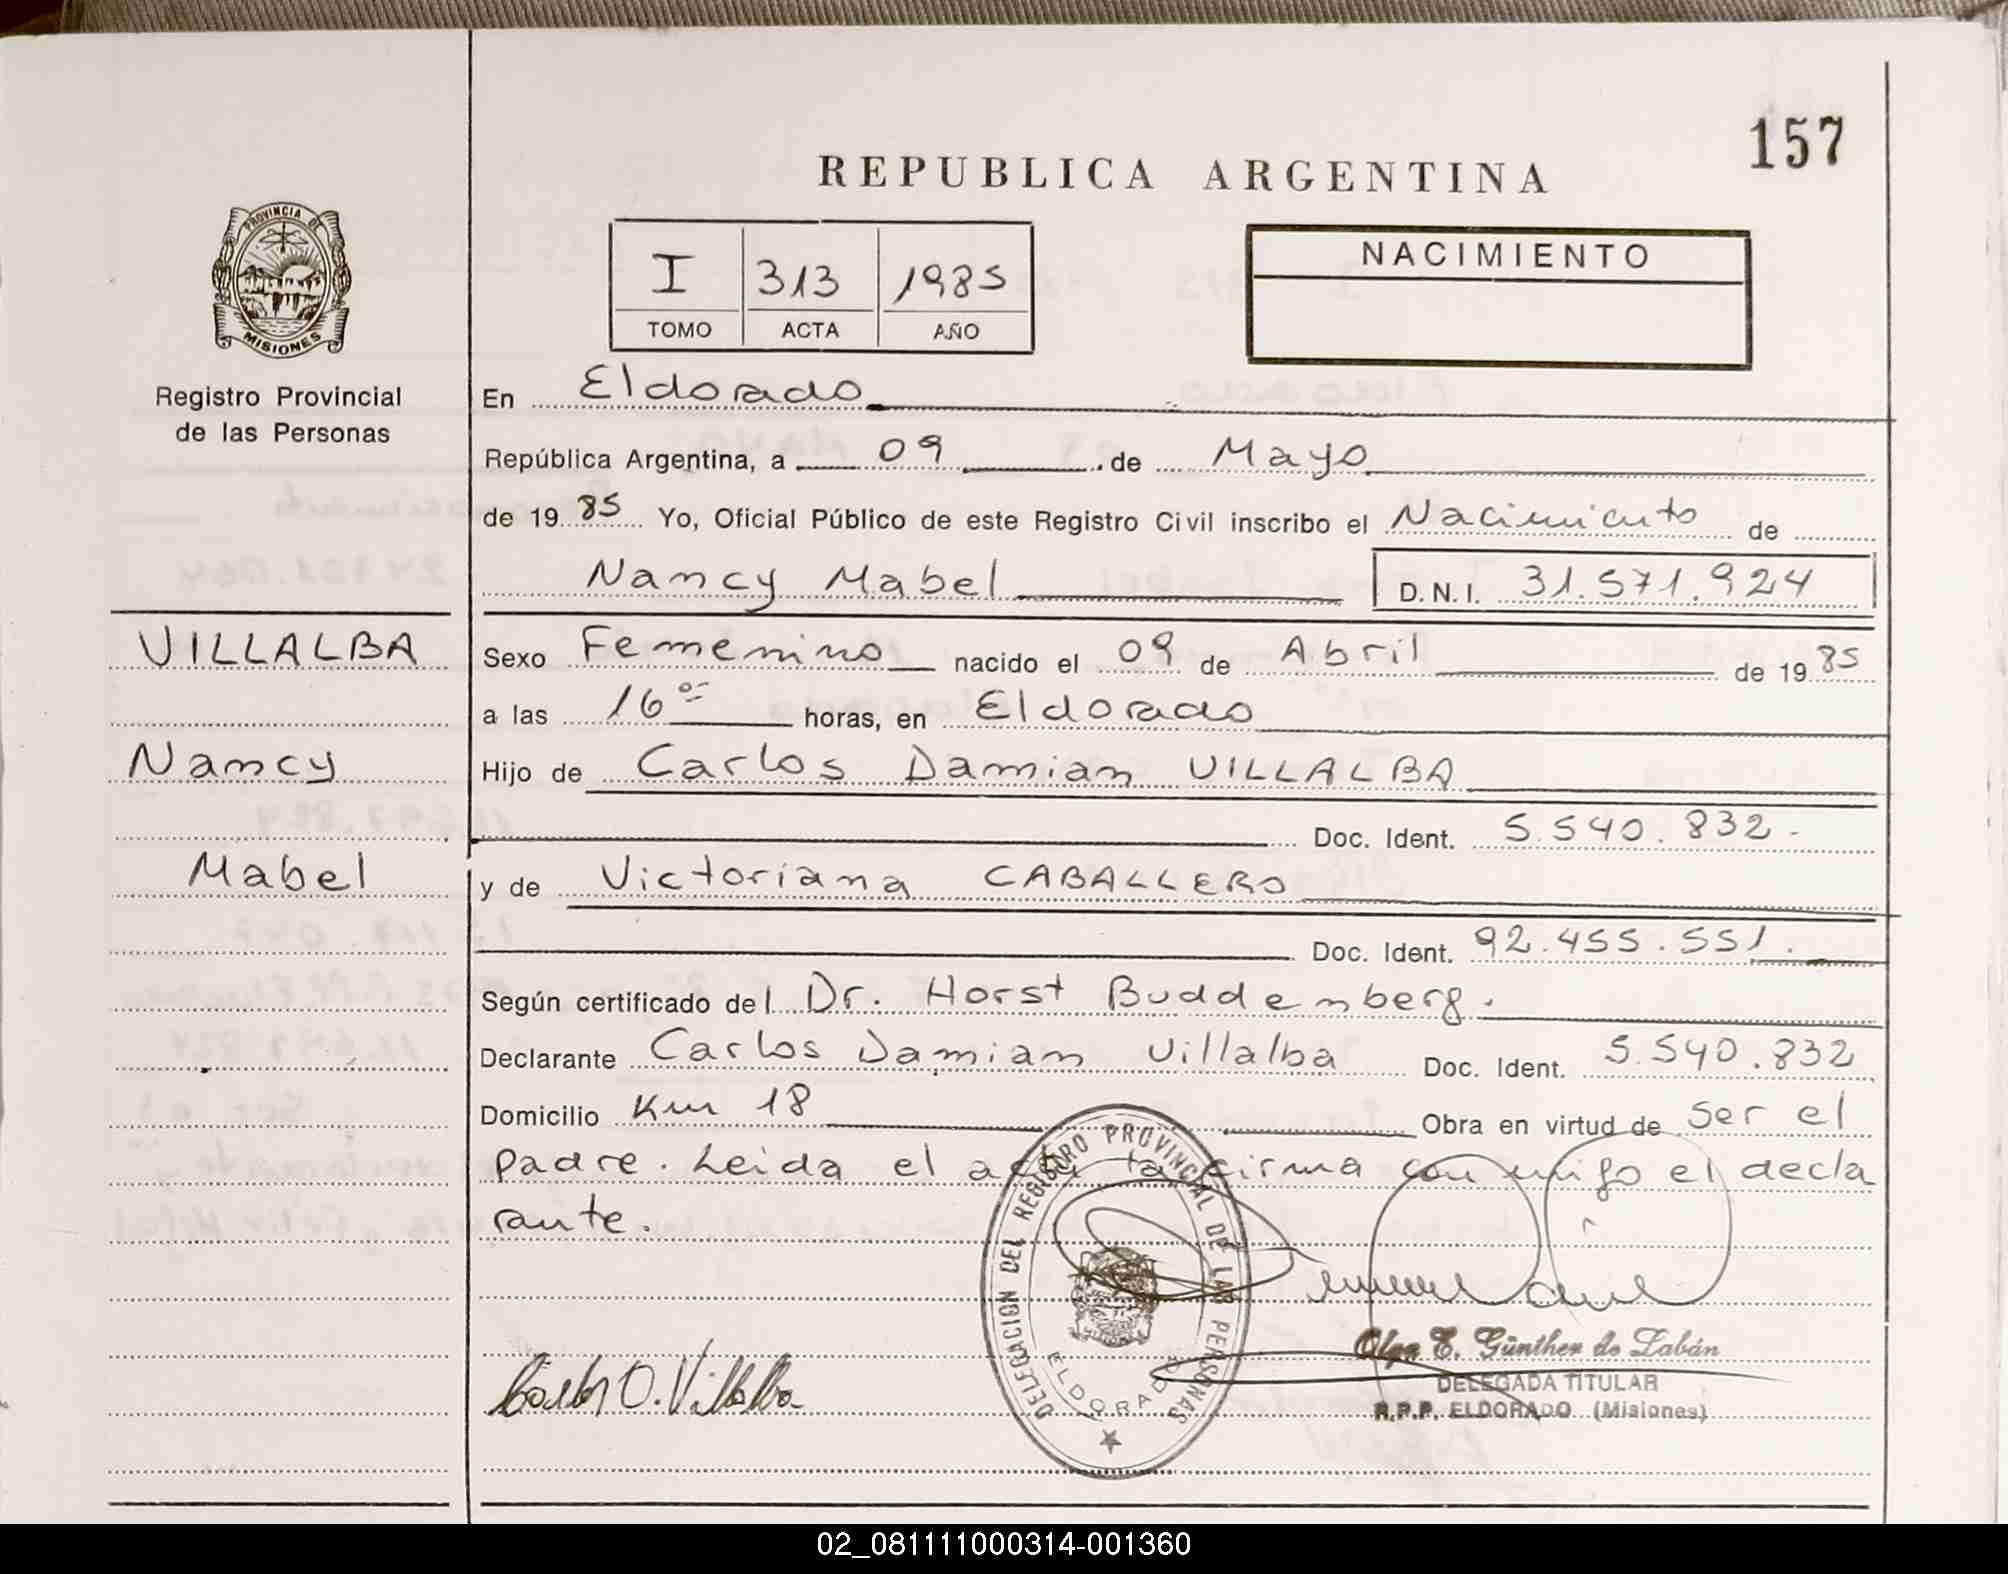 157
REPUBLICA ARGENTINA
PROVINCIA DE
MISIONES
Registro Provincial
de las Personas
I 313 1985
TOMO ACTA AÑO
NACIMIENTO
En Eldorado
República Argentina, a 09 de Mayo
de 19 85 Yo, Oficial Público de este Registro Civil inscribo el Nacimiento de
Nancy Mabel D.N.I. 31.571.924
VILLALBA
Nancy
Mabel
Sexo Femenino nacido el 09 de Abril de 19 85
a las 16 00 horas, en Eldorado
Hijo de Carlos Damian VILLALBA
Doc. Ident. 5.540.832.-
y de Victoriana CABALLERO
Doc. Ident. 92.455.551.
Según certificado del Dr. Horst Buddenberg.
Declarante Carlos Damian Villalba Doc. Ident. 5.540.832
Domicilio Km 18 Obra en virtud de ser el
padre. Leida el acta la firma conmigo el decla
rante.
DELEGACION DEL REGISTRO PROVINCIAL DE LAS PERSONAS
ELDORADO
Carlos D. Villalba
Olga E. Günther de Labán
DELEGADA TITULAR
R.P.P. ELDORADO (Misiones)
02_081111000314-001360